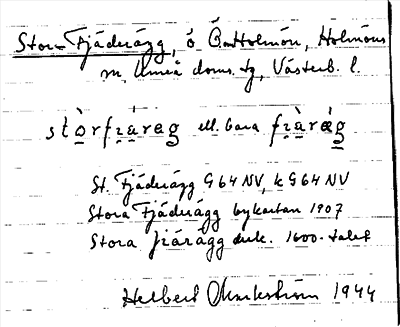 Stora Fjäderägg, ö Ö. Holmön, Holmöns
sn, Umeå doms. tg, Västerb. l.
stòrfi̯àræg ell. bara fi̯àrǽg
St. Fjäderägg G64NV, k G64NV
Stora Fjäderägg bykartan 1907
Stora fiärägg dok. 1600-talet
Helbert 1944